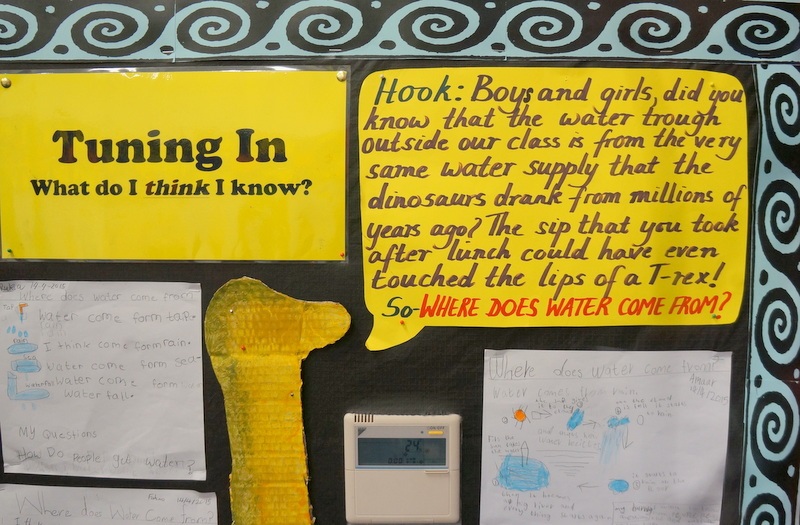 Tuning In
What do I think I know?
Hook: Boys and girls, did you
know that the water trough
outside our class is from the very
same water supply that the
dinosaurs drank from millions of
years ago? The sip that you took
after lunch could have even
touched the lips of a T-rex!
So-WHERE DOES WATER COME FROM?
Where does water come from
water come form tap.
rain
I think come form rain.
water come form sea.
water come form
water fall.
My Questions
How Do People get water?
Where does Water Come From?
24
Where does water come from?
Amaar
Water comes from rain.